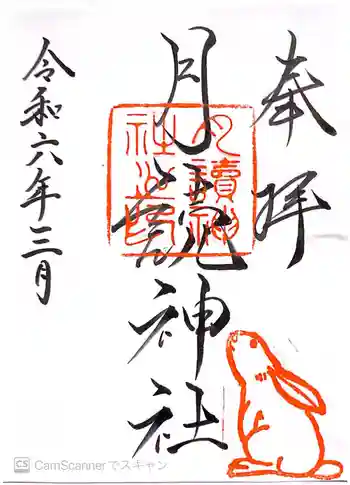 奉拝
月讀神社
月讀神社之印
令和六年三月
CS CamScannerでスキャン